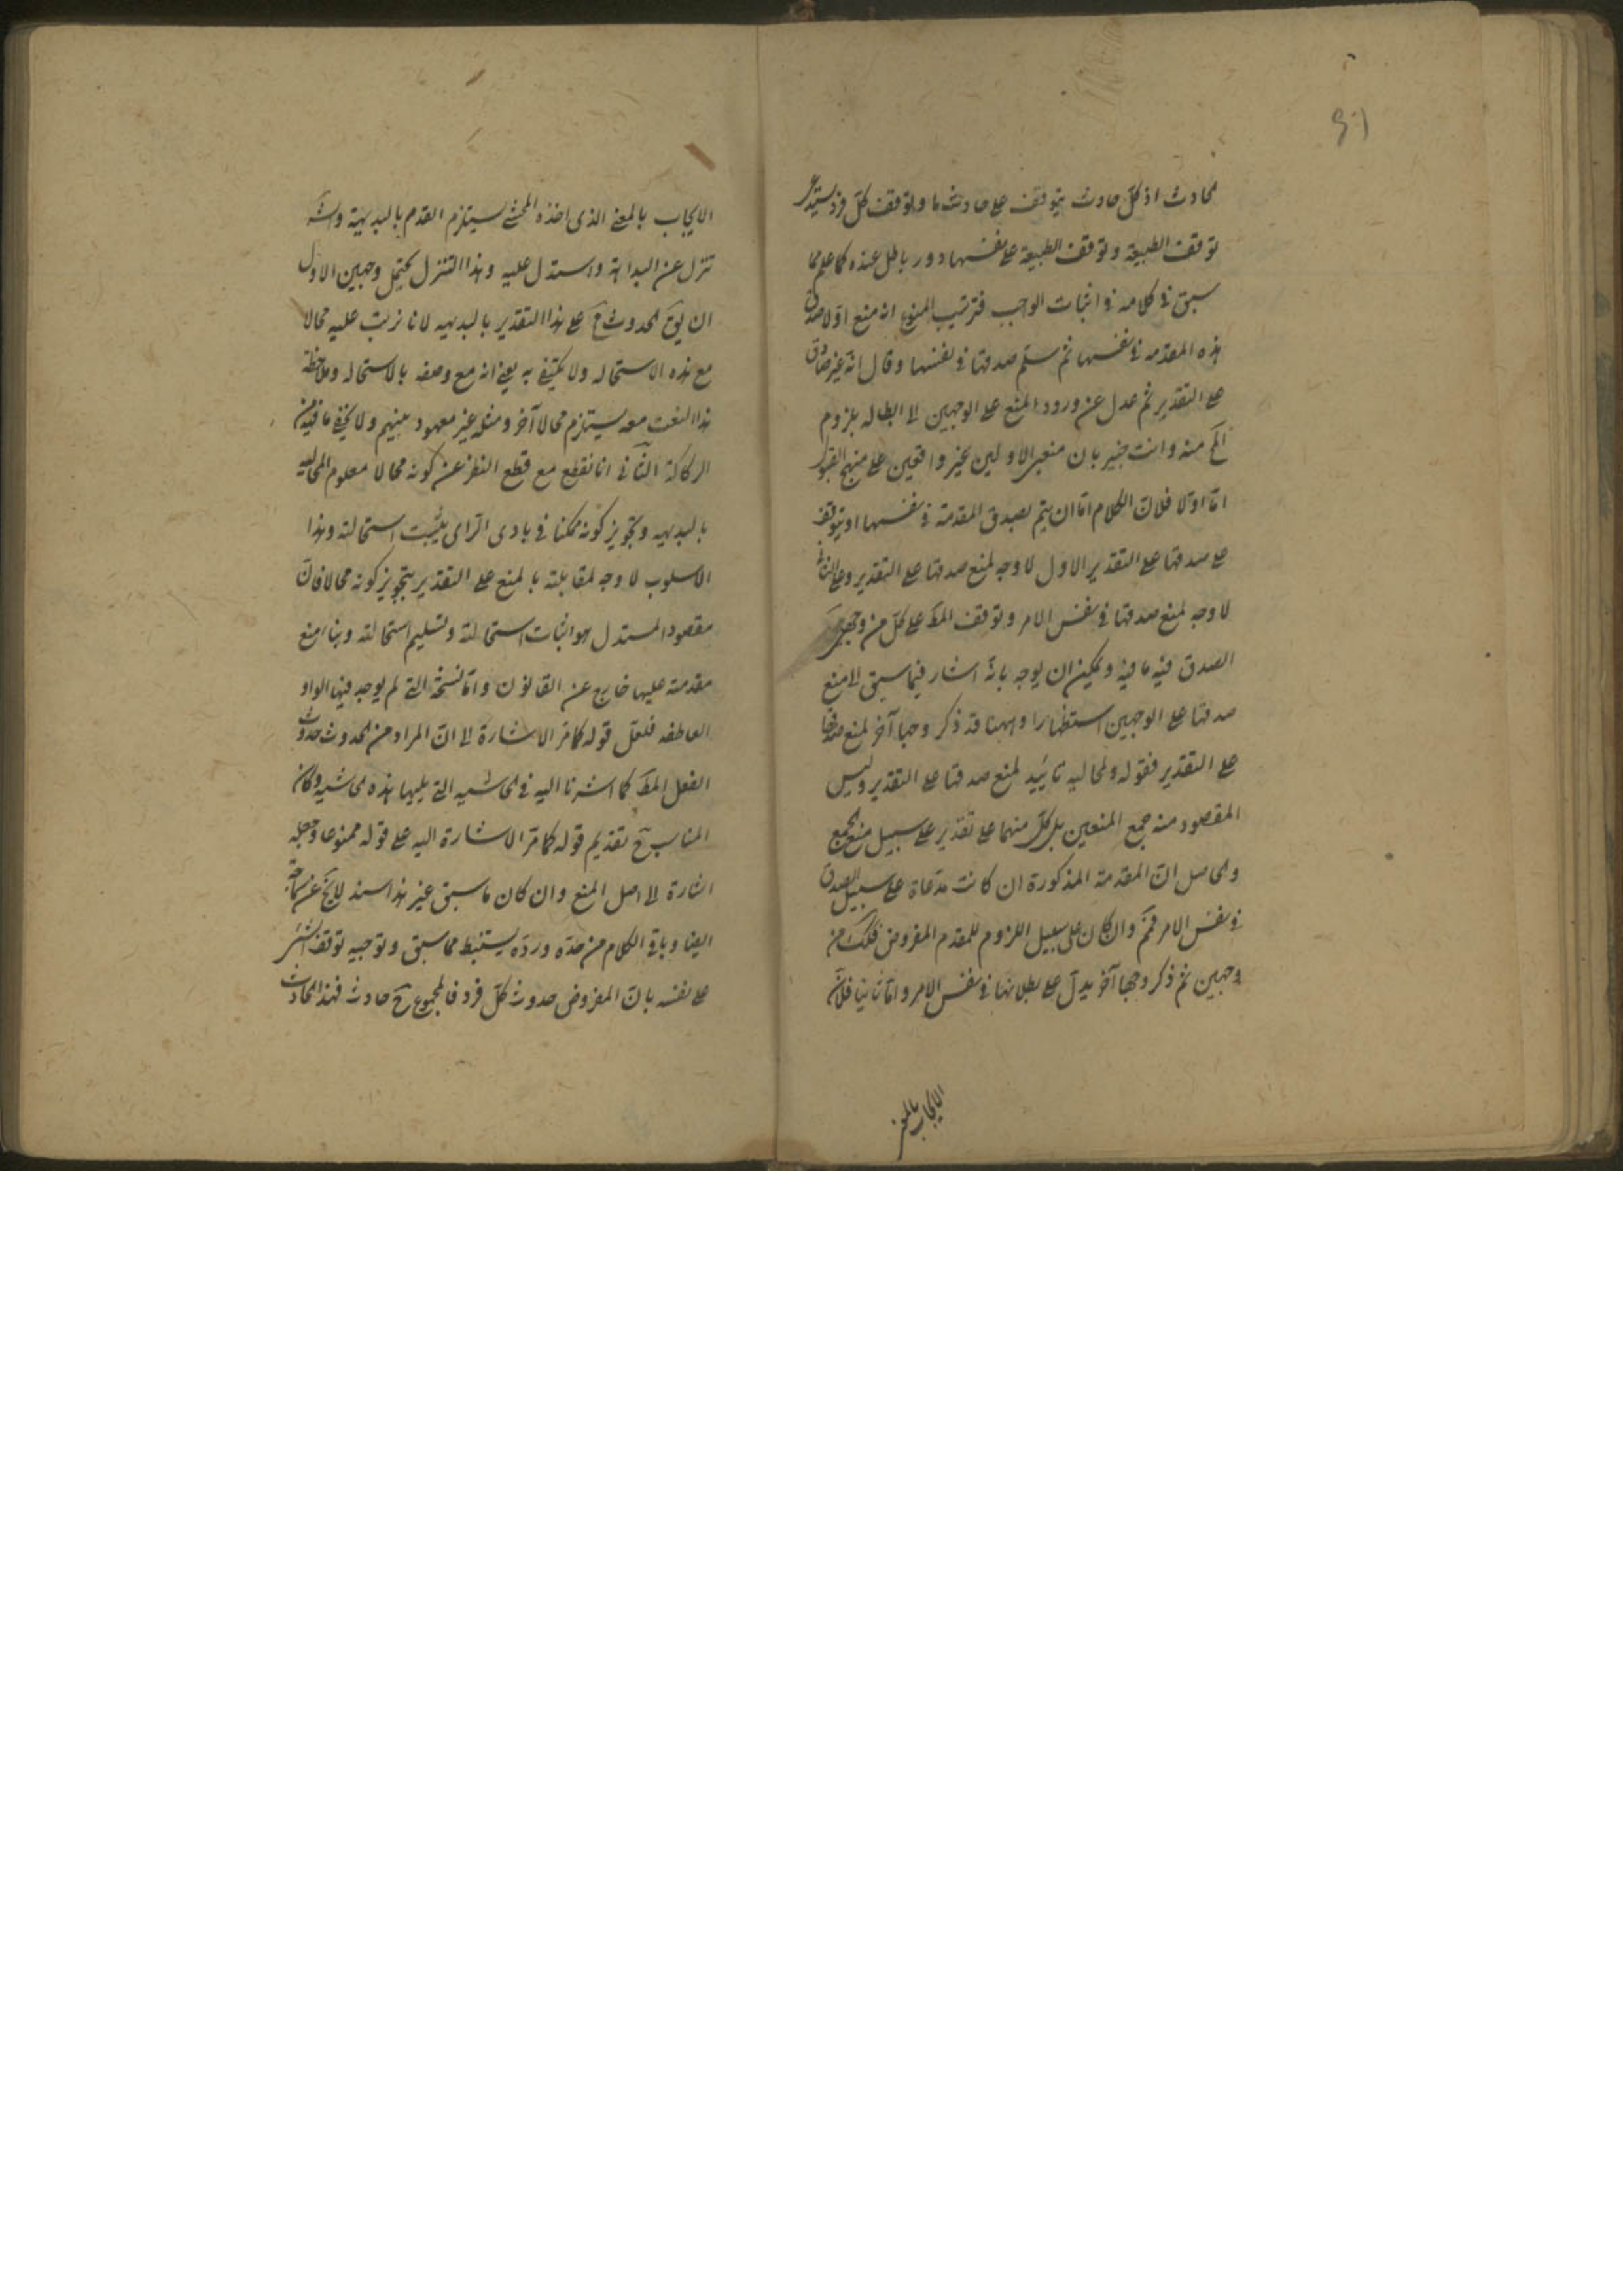 لحادث اذ كلّ حادث يتوقف على حادث ما وتوقف كلّ فرد يستدعى
توقف الطبيعة وتوقف الطبيعة على نفسها دور باطل عنده كما علم مما
سبق في كلامه في اثبات الواجب فترتيب المنوع انه منع اوّلا صدق
هذه المقدمه في نفسها ثم سلّم صدقها في نفسها وقال انّه غير صادق
على التقدير ثم عدل عن ورود المنع على الوجهين الى ابطاله بلزوم
المح منه وانت خبير بان منعيه الاولين غير واقعين على منهج القبول
امّا اوّلا فلانّ الكلام امّا ان يتم بصدق المقدمة في نفسها او يتوقف
على صدقها على التقدير الاول لا وجه لمنع صدقها على التقدير وعلى الثاني
لا وجه لمنع صدقها في نفس الامر وتوقف المط على كلّ من وجهى
الصدق فيه ما فيه ويمكن ان يوجه بانّه اشار فيما سبق الى منع
صدقها على الوجهين استظهارا وههنا قد ذكر وجها آخر لمنع صدقها
على التقدير فقوله ولمحاليه تاييد لمنع صدقها على التقدير وليس
المقصود منه جمع المنعين بل كلّ منهما على تقدير على سبيل منع الجمع
والحاصل انّ المقدمة المذكورة ان كانت مدّعاة على سبيل الصدق
في نفس الامر فمم وان كان على سبيل اللزوم للمقدم المفروض فكك من
وجهين ثم ذكر وجها آخر يدلّ على بطلانها في نفس الامر وامّا ثانيا فلانّ
الايجاب بالمعنى
الايجاب بالمعنى الذى اخذه المحشى يستلزم القدم بالبديهة وانّه
تنزل عن البداهة واستدل عليه وهذا التنزل يحتمل وجهين الاول
ان يق الحدوث مح على هذا التقدير بالبديهه لانا نرتب عليه محالا
مع هذه الاستحاله ولا نكتفى به يعنى انه مع وصفه بالاستحاله وملاحظة
هذا النعت معه يستلزم محالا آخر ومثله غير معهود بينهم ولا يخفى ما فيه من
الركاكة الثانى انا نقطع مع قطع النظر عن كونه محالا معلوم المحاليه
بالبديهه وتجويز كونه ممكنا في بادى الرّاى يثبت استحالته وهذا
الاسلوب لا وجه لمقابلته بالمنع على التقدير بتجويز كونه محالا فانّ
مقصود المستدل هو اثبات استحالته وتسليم استحالته وبناء منع
مقدمته عليها خارج عن القانون وامّا نسخة التى لم يوجد فيها الواو
العاطفه فلعلّ قوله كما مرّ الاشارة الى انّ المراد من الحدوث حدوث
الفعل المط كما اشرنا اليه في الحاشيه التى يليها هذه الحاشيه وكان
المناسب ح تقديم قوله كما مرّ الاشارة اليه على قوله ممنوعا وجعله
اشارة الى اصل المنع وان كان ما سبق غير هذا سند لا يخ عن سماجة
ايضا وباقى الكلام من هذه وردّه يستنبط مما سبق وتوجيه توقف الشىء
على نفسه بانّ المفروض حدوث كلّ فرد فالمجموع ح حادث فهذا الحادث